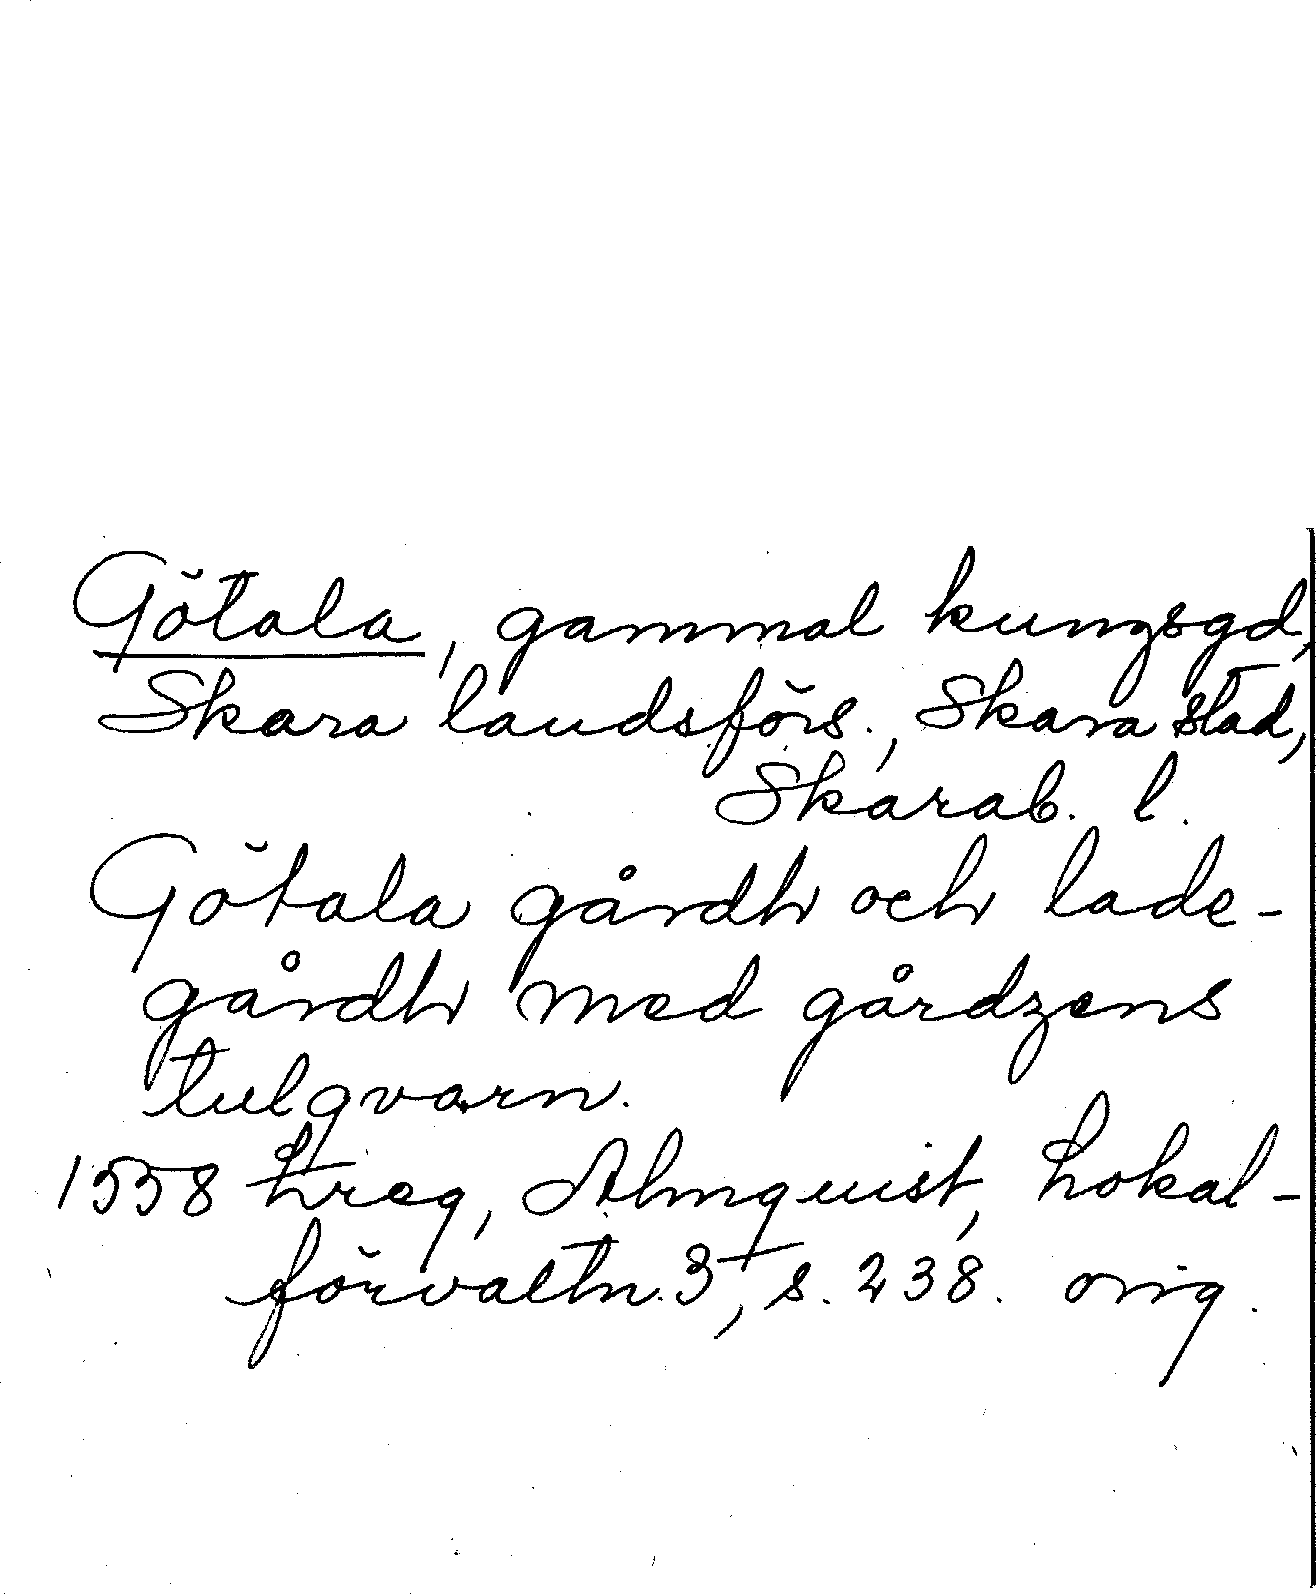 Götala, gammal kungsgd,
Skara landsförs., Skara stad,
Skarab. l.
Götala gårdh och lade-
gårdh med gårdzens
tulqvarn.
1558 Lreg, Almquist, Lokal-
förvaltn. 3, s. 238. orig.